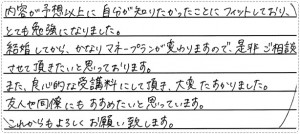 内容が予想以上に自分が知りたかったことにフィットしており、
とても勉強になりました。
結婚してから、かなりマネープランが変わりますので、是非ご相談
させて頂きたいと思っております。
また、良心的な受講料にして頂き、大変たすかりました。
友人や同僚にもすすめたいと思っています。
これからもよろしくお願い致します。